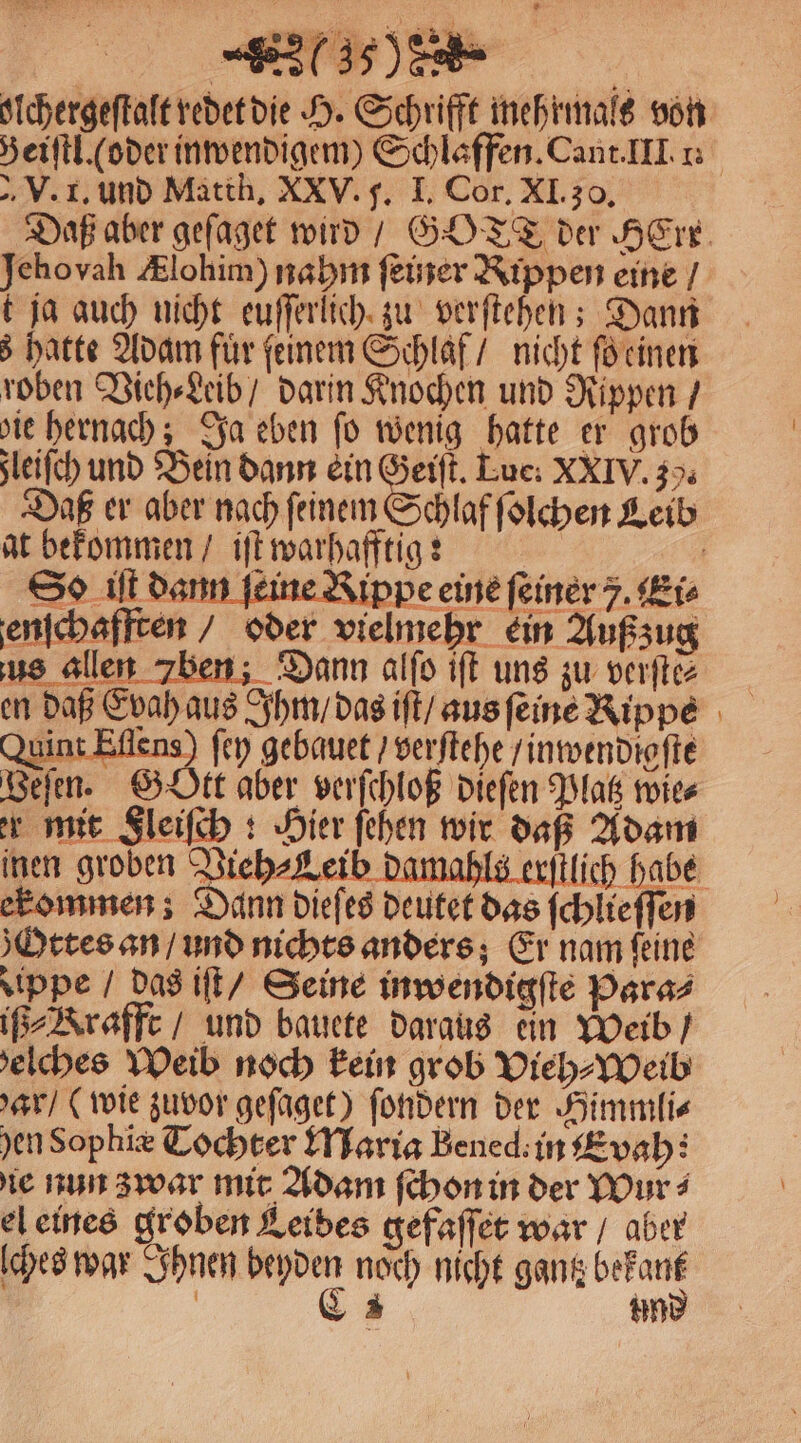 (35)
olchergeſtalt redet die H. Schrifft mehrmals von
Geiſtl. (oder inwendigem) Schlaffen. Cant. III. 1:
C. V. 1. und Matth. XXV. 5. I. Cor. XI. 30.
Daß aber geſaget wird / GOTT der HErr
Jehovah Ælohim) nahm ſeiner Rippen eine /
t ja auch nicht euſſerlich zu verſtehen; Dann
s hatte Adam für ſeinem Schlaf / nicht ſo einen
roben Vieh-Leib / darin Knochen und Rippen /
vie hernach; Ja eben ſo wenig hatte er grob
Fleiſch und Bein dann ein Geiſt. Luc. XXIV. 39.
Daß er aber nach ſeinem Schlaf ſolchen Leib
at bekommen / iſt warhafftig:
So iſt dann ſeine Rippe eine ſeiner 7. Ei-
enſchafften / oder vielmehr ein Außzug
us allen 7ben; Dann alſo iſt uns zu verſte-
en daß Evah aus Ihm / das iſt / aus ſeine Rippe
Quint Eſſens) ſey gebauet / verſtehe / inwendigſte
Weſen. GOtt aber verſchloß dieſen Platz wie-
er mit Fleiſch: Hier ſehen wir daß Adam
inen groben Vieh-Leib damahls erſtlich habe
ekommen; Dann dieſes deutet das ſchlieſſen
GOttes an / und nichts anders; Er nam ſeine
Rippe / das iſt / Seine inwendigſte Para-
iß-Krafft / und bauete daraus ein Weib /
welches Weib noch kein grob Vieh-Weib
var / (wie zuvor geſaget) ſondern der Himmli-
hen Sophiæ Tochter Maria Bened: in Evah:
die nun zwar mit Adam ſchon in der Wur-
el eines groben Leibes gefaſſet war / aber
lches war Ihnen beyden noch nicht gantz bekant
C 2 und